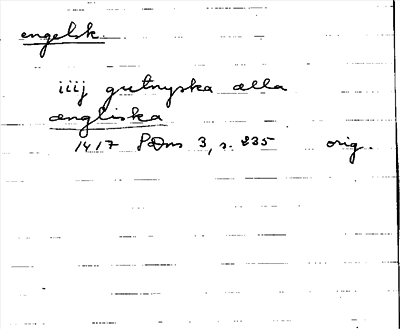 engelsk.
iiij gutnyska ælla
ængliska
1417 SDns 3, s. 235 orig.